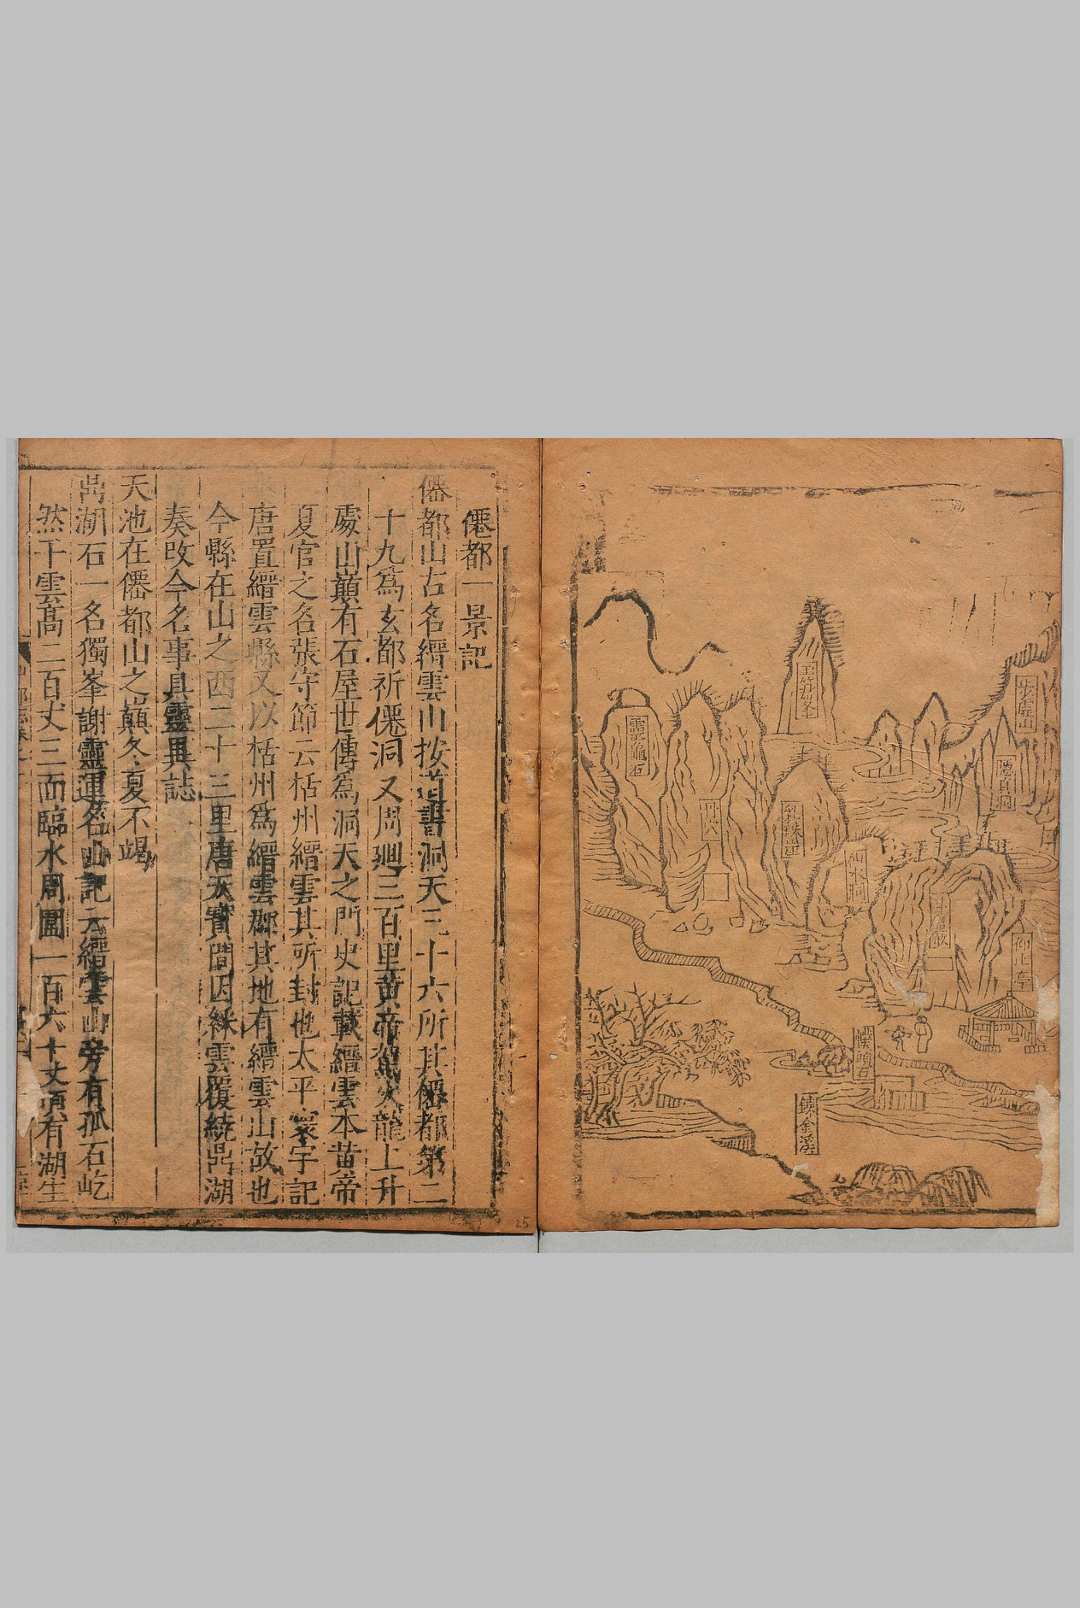 步虛山
隱真洞
玉笋峯
忘歸洞
仰止亭
練金溪
僊都一景記
僊都山古名縉雲山按道書洞天三十六所其僊都第二
十九爲玄都祈僊洞又周廻三百里黄帝駕火龍上升
處山巔有石屋世傳爲洞天之門史記載縉雲本黄帝
夏官之名張守節云栝州縉雲其所封也太平寰宇記
唐置縉雲縣又以栝州爲縉雲郡其地有縉雲山故也
今縣在山之西二十三里唐天寳間因綵雲覆繞鼎湖
奏改今名事具靈異誌
天池在僊都山之巔冬夏不竭
鼎湖石一名獨峯謝靈運名山記云縉雲山旁有孤石屹
然干雲高二百丈三面臨水周圍一百六十丈頂有湖生